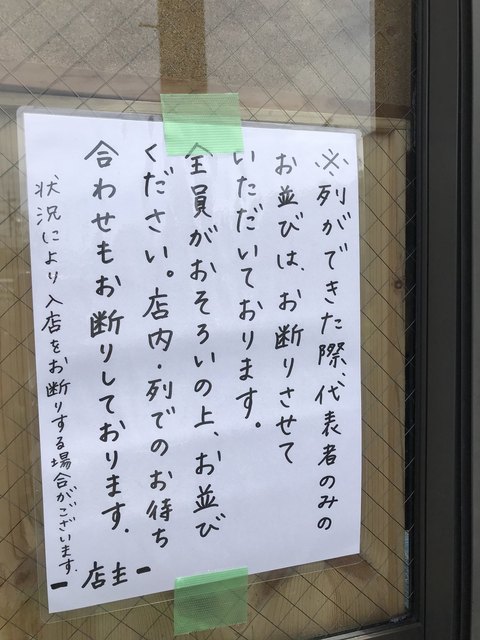 ※列ができた際、代表者のみの
お並びは、お断りさせて
いただいております。
全員がおそろいの上、お並び
ください。店内・列でのお待ち
合わせもお断りしております。
状況により入店をお断りする場合がございます。
ー店主ー